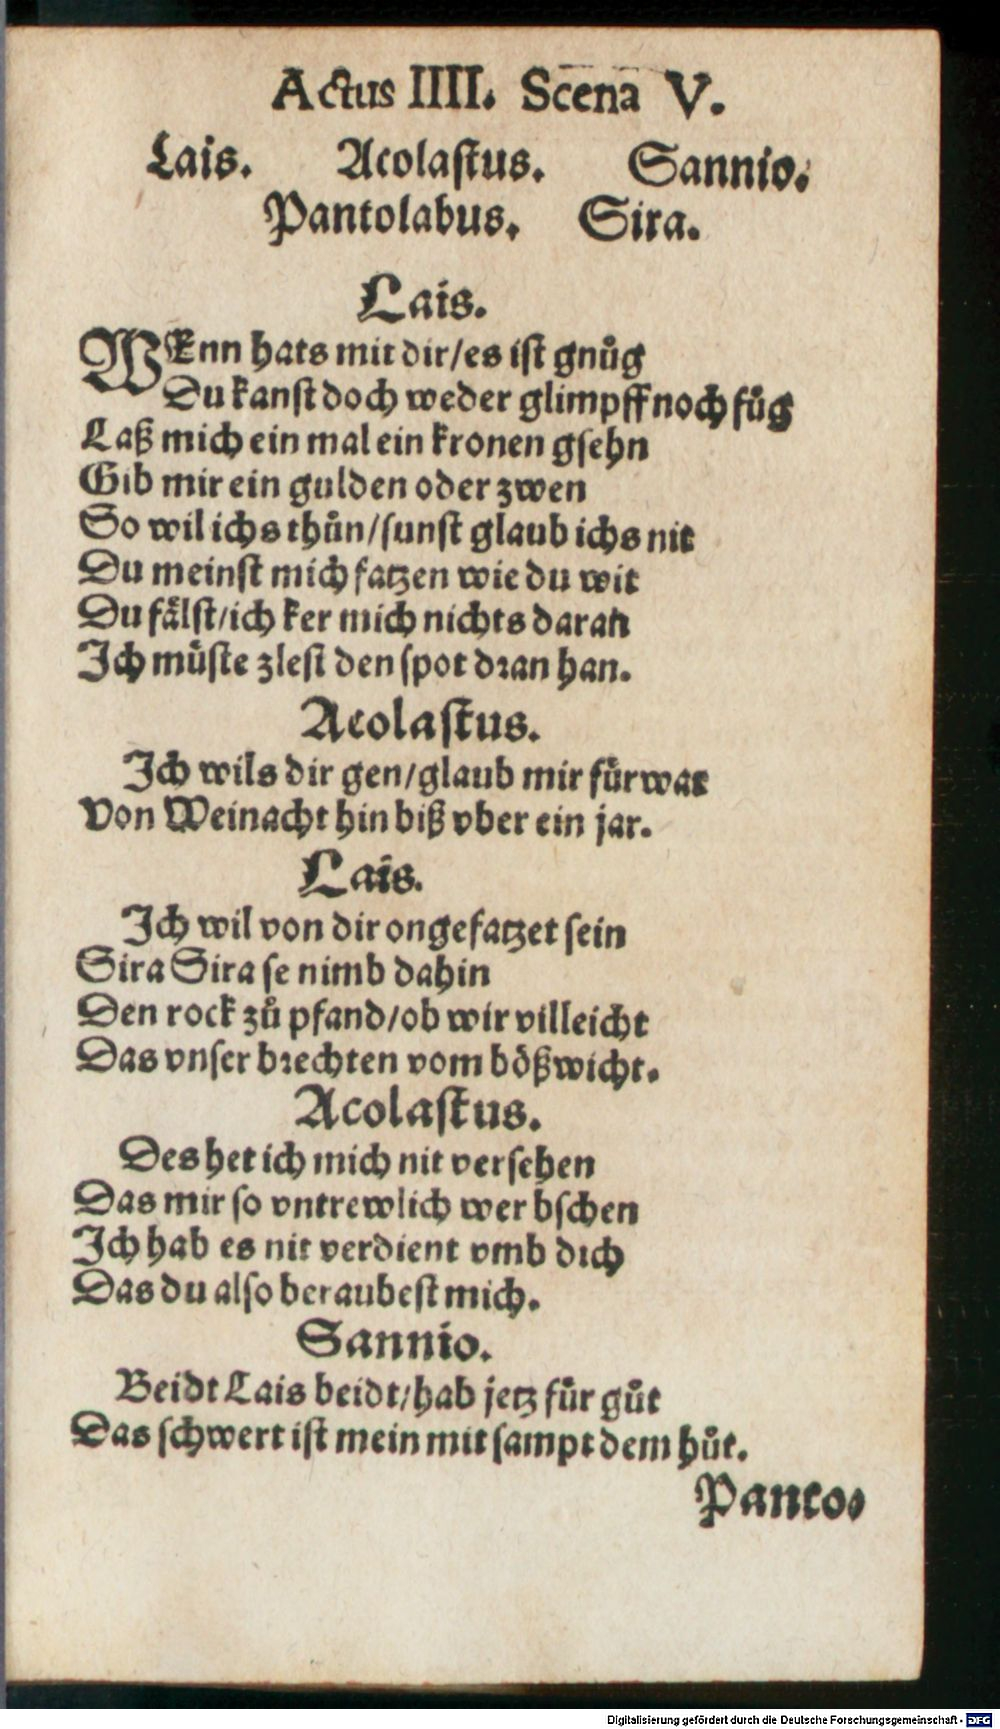 Actus IIII. Scena V.
Lais. Acolaſtus. Sannio.
Pantolabus. Sira.
Lais.
WEnn hats mit dir/es iſt gnůg
Du kanſt doch weder glimpff noch fůg
Laß mich ein mal ein kronen gſehn
Gib mir ein gulden oder zwen
So wil ichs thůn/ſunſt glaub ichs nit
Du meinſt mich fatzen wie du wit
Du fälſt/ich ker mich nichts daran
Ich müſte zleſt den ſpot dꝛan han.
Acolaſtus.
Ich wils dir gen/glaub mir fürwar
Von Weinacht hin biß vber ein jar.
Lais.
Ich wil von dir ongefatzet ſein
Sira Sira ſe nimb dahin
Den rock zů pfand/ob wir villeicht
Das vnſer bꝛechten vom bößwicht.
Acolaſtus.
Des het ich mich nit verſehen
Das mir ſo vntrewlich wer bſchen
Ich hab es nit verdient vmb dich
Das du alſo beraubeſt mich.
Sannio.
Beidt Lais beidt/hab jetz für gůt
Das ſchwert iſt mein mit ſampt dem hůt.
Panto⸗
Digitalisierung gefördert durch die Deutsche Forschungsgemeinschaft - DFG